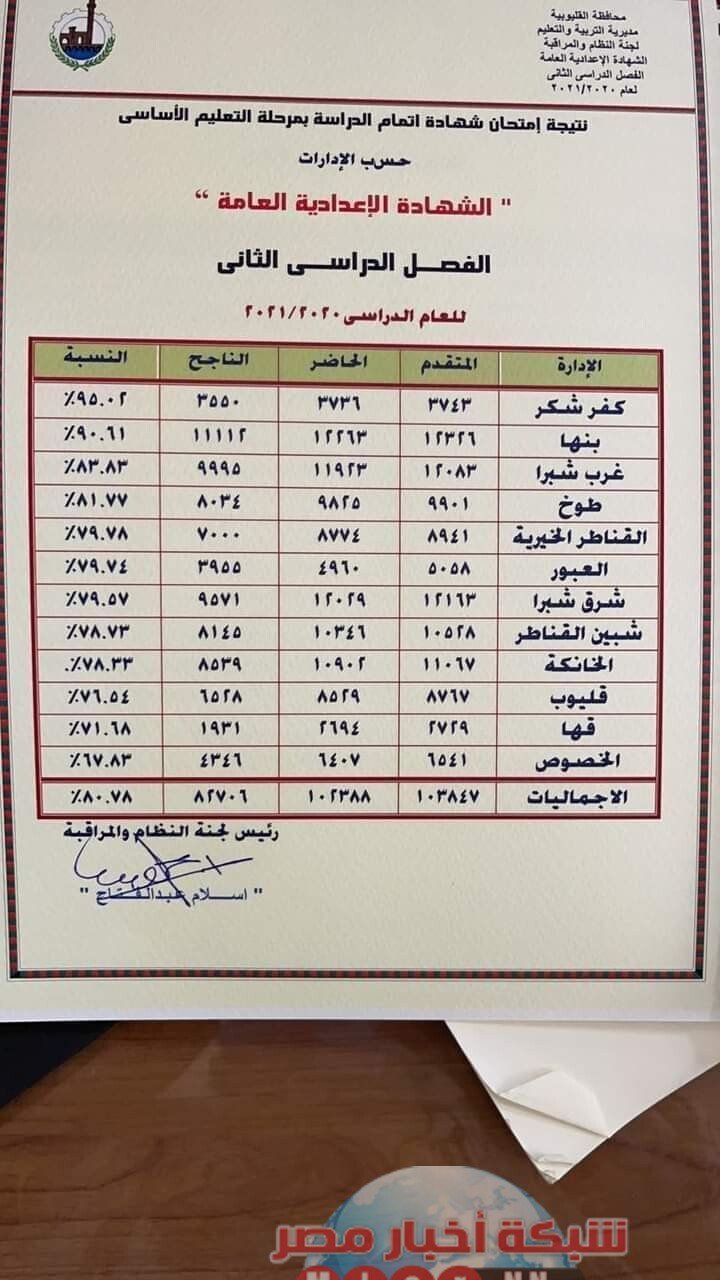 محافظة القليوبية
مديرية التربية والتعليم
لجنة النظام والمراقبة
الشهادة الإعدادية العامة
الفصل الدراسى الثانى
لعام ٢٠٢١/٢٠٢٠
نتيجة إمتحان شهادة اتمام الدراسة بمرحلة التعليم الأساسى
حسب الإدارات
" الشهادة الإعدادية العامة "
الفصل الدراسى الثانى
للعام الدراسى ٢٠٢١/٢٠٢٠
الإدارة المتقدم الحاضر الناجح النسبة
كفر شكر ٣٧٤٣ ٣٧٣٦ ٣٥٥٠ ٩٥.٠٢٪
بنها ١٢٣٢٦ ١٢٢٦٣ ١١١١٢ ٩٠.٦١٪
غرب شبرا ١٢٠٨٣ ١١٩٢٣ ٩٩٩٥ ٨٣.٨٣٪
طوخ ٩٩٠١ ٩٨٢٥ ٨٠٣٤ ٨١.٧٧٪
القناطر الخيرية ٨٩٤١ ٨٧٧٤ ٧٠٠٠ ٧٩.٧٨٪
العبور ٥٠٥٨ ٤٩٦٠ ٣٩٥٥ ٧٩.٧٤٪
شرق شبرا ١٢١٦٣ ١٢٠٢٩ ٩٥٧١ ٧٩.٥٧٪
شبين القناطر ١٠٥٢٨ ١٠٣٤٦ ٨١٤٥ ٧٨.٧٣٪
الخانكة ١١٠٦٧ ١٠٩٠٢ ٨٥٣٩ ٧٨.٣٣٪
قليوب ٨٧٦٧ ٨٥٢٩ ٦٥٢٨ ٧٦.٥٤٪
قها ٢٧٢٩ ٢٦٩٤ ١٩٣١ ٧١.٦٨٪
الخصوص ٦٥٤١ ٦٤٠٧ ٤٣٤٦ ٦٧.٨٣٪
الاجماليات ١٠٣٨٤٧ ١٠٢٣٨٨ ٨٢٧٠٦ ٨٠.٧٨٪
رئيس لجنة النظام والمراقبة
" اسلام عبدالفتاح "
شبكة أخبار مصر